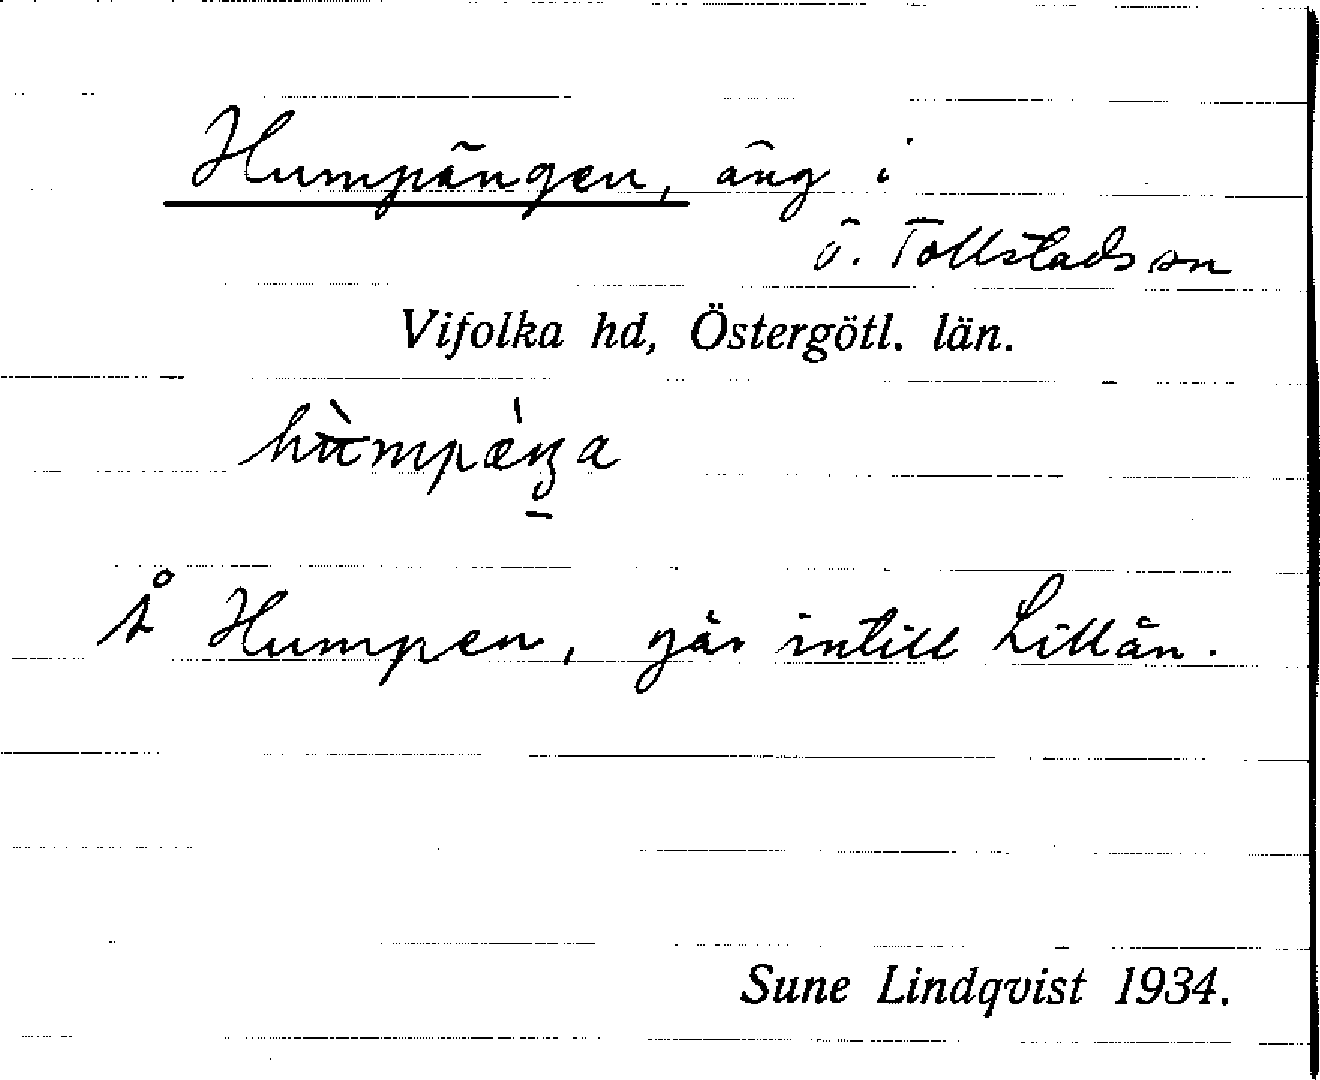 Humpängen, äng i
ö. Tollstads sn
Vifolka hd, Östergötl. län.
Å Humpen, går intill Lillån.
Sune Lindqvist 1934.